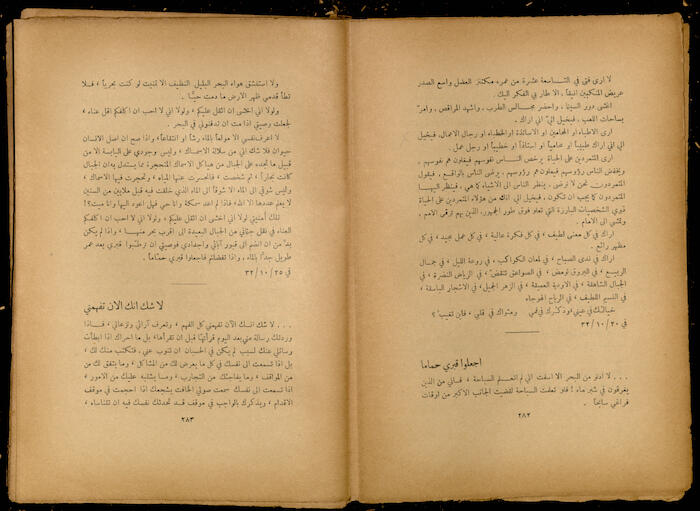 لا ارى فتى في التاسعة عشرة من عمره مكتنز العضل واسع الصدر
عريض المنكبين انيقاً، الا طار بي الفكر اليك.
اغشى دور السينما، واحضر مجالس الطرب، واشهد المراقص، وامرّ
بساحات اللعب، فيخيل اليّ اني اراك.
ارى الاطباء او المحامين او الاساتذة او الخطباء او رجال الاعمال، فيخيل
الي اني اراك طبيباً او محامياً او استاذاً او خطيباً او رجل عمل.
ارى المتمردين على الحياة يرخص الناس نفوسهم فيغلون هم نفوسهم،
ويخفض الناس رؤوسهم فيعلون هم رؤوسهم. يرضى الناس بالواقع، فيقول
المتمردون نحن لا نرضى. ينظر الناس الى الاشياء كما هي، فينظر اليها
المتمردون كما يجب ان تكون. فيخيل الي انك من هؤلاء المتمردين على الحياة
ذوي الشخصيات البارزة التي تعلو فوق طور الجمهور، الذين بهم ترقى الامم،
وتمشي الى الامام.
اراك في كل معنى لطيف، في كل فكرة عالية، في كل عمل مجيد، في كل
مظهر رائع.
اراك في ندى الصباح، في لمعان الكواكب، في روعة الليل، في جمال
الربيع، في البروق تومض، في الصواعق تنقضّ، في الرياض النضرة، في
الجبال الشاهقة، في الاودية العميقة، في الزهر الجميل، في الاشجار الباسقة،
في النسيم اللطيف، في الرياح الهوجاء
خيالك في عيني وذكرك في فمي ومثواك في قلبي، فاين تغيب؟
في ٢٠/١٠/٣٢
اجعلوا قبري حماما
. . . لا ادنو من البحر الا اسفت الي لم اتعلم السباحة، فاني من الذين
يغرقون في شبر ماء! فلو تعلمت السباحة لقضيت الجانب الاكبر من اوقات
فراغي سابحاً.
٢٨٢
ولا استنشق هواء البحر البليل النظيف الا تمنيت لو كنت بحرياً، فلا
تطأ قدمي ظهر الارض ما دمت حيّاً.
ولولا اني اخشى ان اثقل عليكم، ولولا اني لا احب ان اكلفكم اقل عناء،
لجعلت وصيتي اذا مت ان تدفنوني في البحر.
لا اعرف نفسي الا مولعاً بالماء رشاً او انتقاعاً، واذا صح ان اصل الانسان
حيوان فلا شك اني من سلالة الاسماك، وليس وجودي على اليابسة الا من
قبيل ما نجده على الجبال من هياكل الاسماك المتحجرة مما يستدل به ان الجبال
كانت بحاراً، ثم شخصت، فانحسرت عنها المياه، وتحجرت فيها الاسماك،
وليس شوقي الى الماء الا شوقاً الى الماء الذي خلقت فيه قبل ملايين من السنين
لا يعلم عددها الا الله، فاذا لم اعد سمكة واناحي فهل اعود اليها واناميت؟!
تلك أمنيتي لولا اني اخشى ان اثقل عليكم، ولولا اني لا احب ان اكلفكم
العناء في نقل جثماني من الجبال البعيدة الى اقرب بحر منها، واذا لم يكن
بدّ من ان انضم الى قبور آبائي واجدادي فوصيتي ان ترطّبوا قبري بعد عمر
طويل جدّاً بالماء، واذا تفضلتم فاجعلوا قبري حمّاماً.
في ٢٥/١٠/٣٢
لا شك انك الآن تفهمني
. . . لا شك انك الآن تفهمني كل الفهم، وتعرف آرائي ونزعاتي، فاذا
وردتك رسالة مني بعد اليوم قرأتها قبل ان تقرأها، بل ما اراك اذا ابطأت
رسائلي عنك لسبب لم يكن في الحسبان ان تنوب عني، فتكتب منك لك،
بل اذا تسمعت الى نفسك في كل ما يعرض لك من المشاكل، وما يتفق لك من
من المواقف، وما يفاجئك من التجارب، وما يشتبه عليك من الامور،
اذا تسمعت الى نفسك سمعت صوتي الخافت يشجعك اذا احجمت في موقف
الاقدام، ويذكرك بالواجب في موقف قد تحدثك نفسك فيه ان تتناساه،
٢٨٣